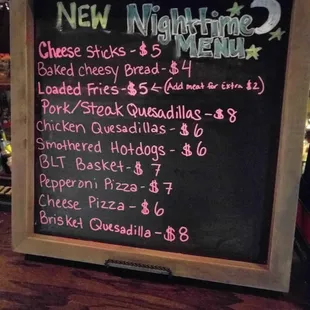 NEW Nighttime
MENU
Cheese Sticks - $5
Baked cheesy Bread - $4
Loaded Fries - $5 (Add meat for Extra $2)
Pork/Steak Quesadillas - $8
Chicken Quesadillas - $6
Smothered Hotdogs - $6
BLT Basket - $7
Pepperoni Pizza - $7
Cheese Pizza - $6
Brisket Quesadilla - $8